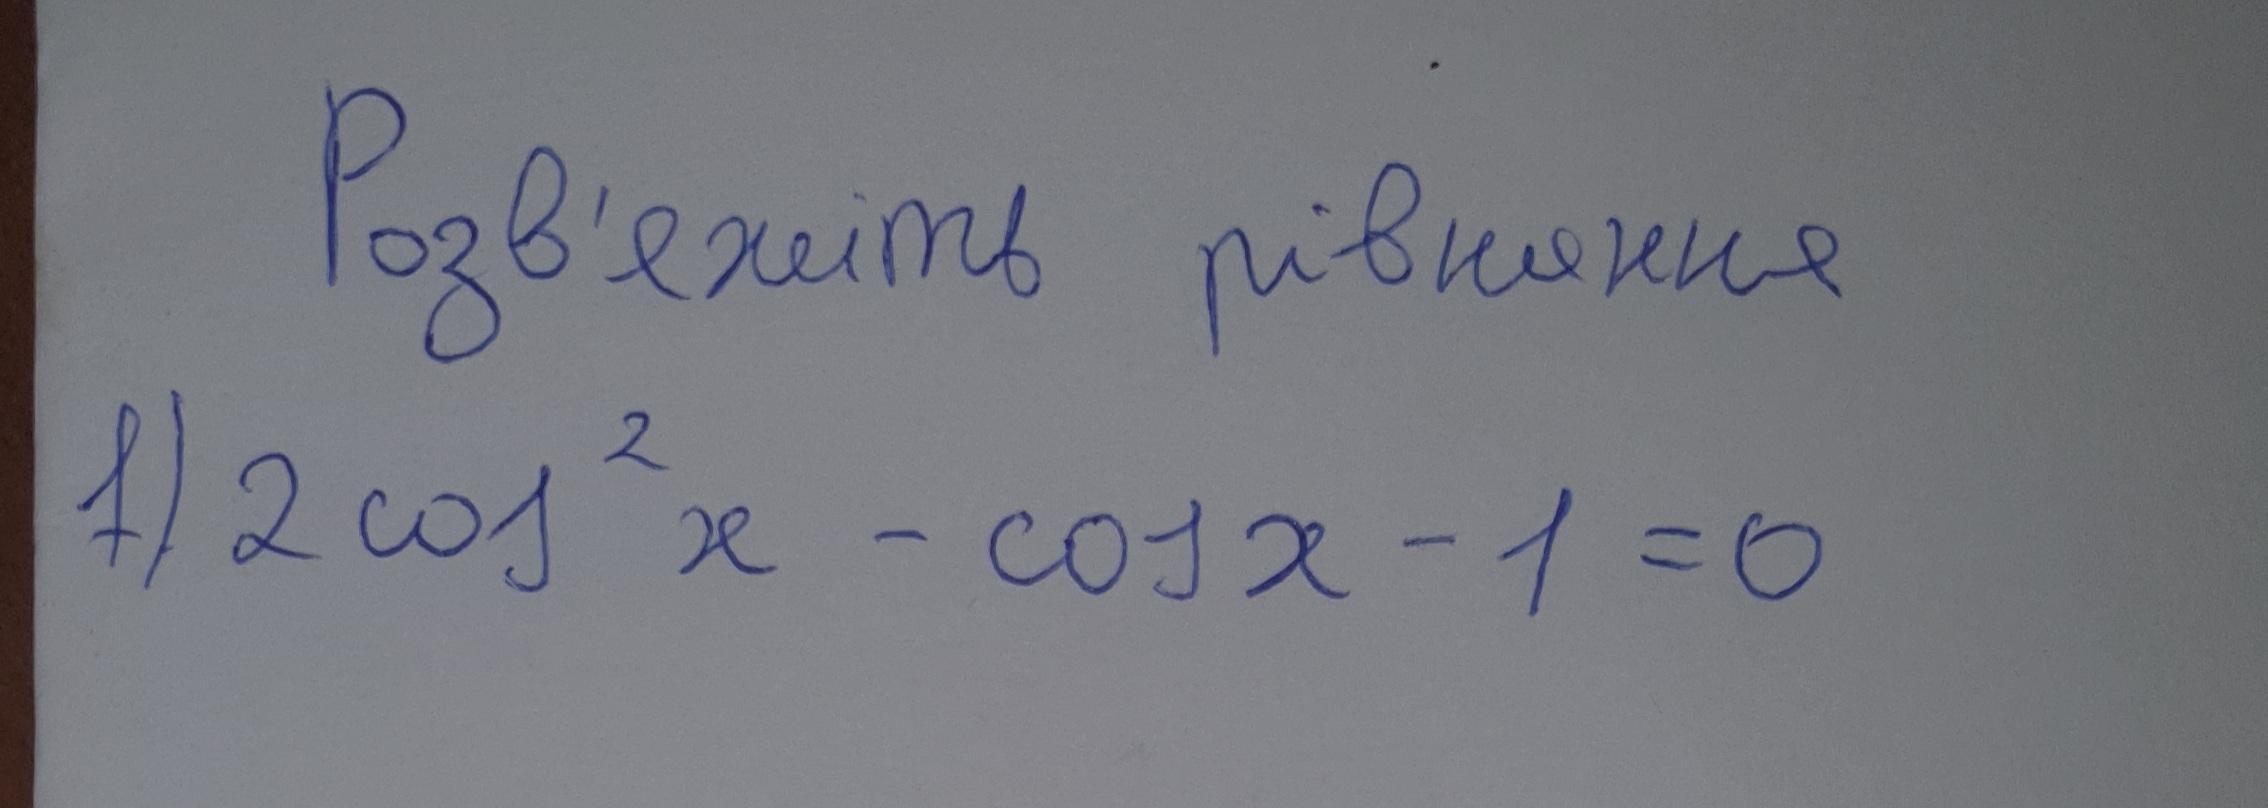 Розв'яжіть рівняння
1) 2 cos² x - cos x - 1 = 0